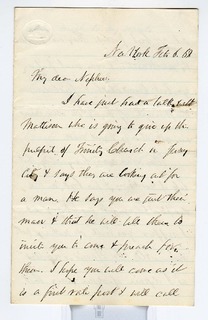 New York Feb 6.
My dear Nephew.
I have just had a talk with
Mattison who is going to give up the
pulpit of Trinity Church in Jersey
City & says they are looking out for
a man. He says you are just their
man & that he will tell them to
invite you to come & preach for
them. I hope you will come as it
is a first rate post & will call